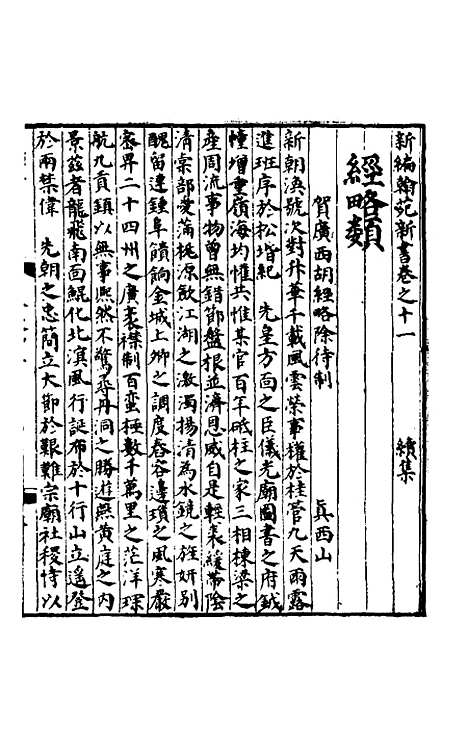 新編翰苑新書卷之十一 續集
經略類
賀廣西胡經略除待制 真西山
新朝渙號次對升華千載風雲榮事權於桂管九天雨露
進班序於松堦紀 先皇方面之臣儀先廟圖書之府鉞
幢增重嶺海均惟共惟某官百年砥柱之家三相棟梁之
産周流事物曾無錯節盤根並濟恩威自是輕裘緩帶陰
清棠部愛蒲桃源飲江湖之激濁揚清為水鏡之旌妍別
醜留邊鍾阜饋餉金城上卿之調度舂容邊瑣之風寒嚴
客畀二十四州之廣袤襟制百蠻極數千萬里之茫洋琛
航九貢鎮以無事熙然不驚尋丹洞之勝遊無黄庭之内
景茲者龍飛南面鯤化北溟風行誕布於十行山立遥登
於兩禁偉 先朝之忠簡立大節於艱難宗廟社稷恃以